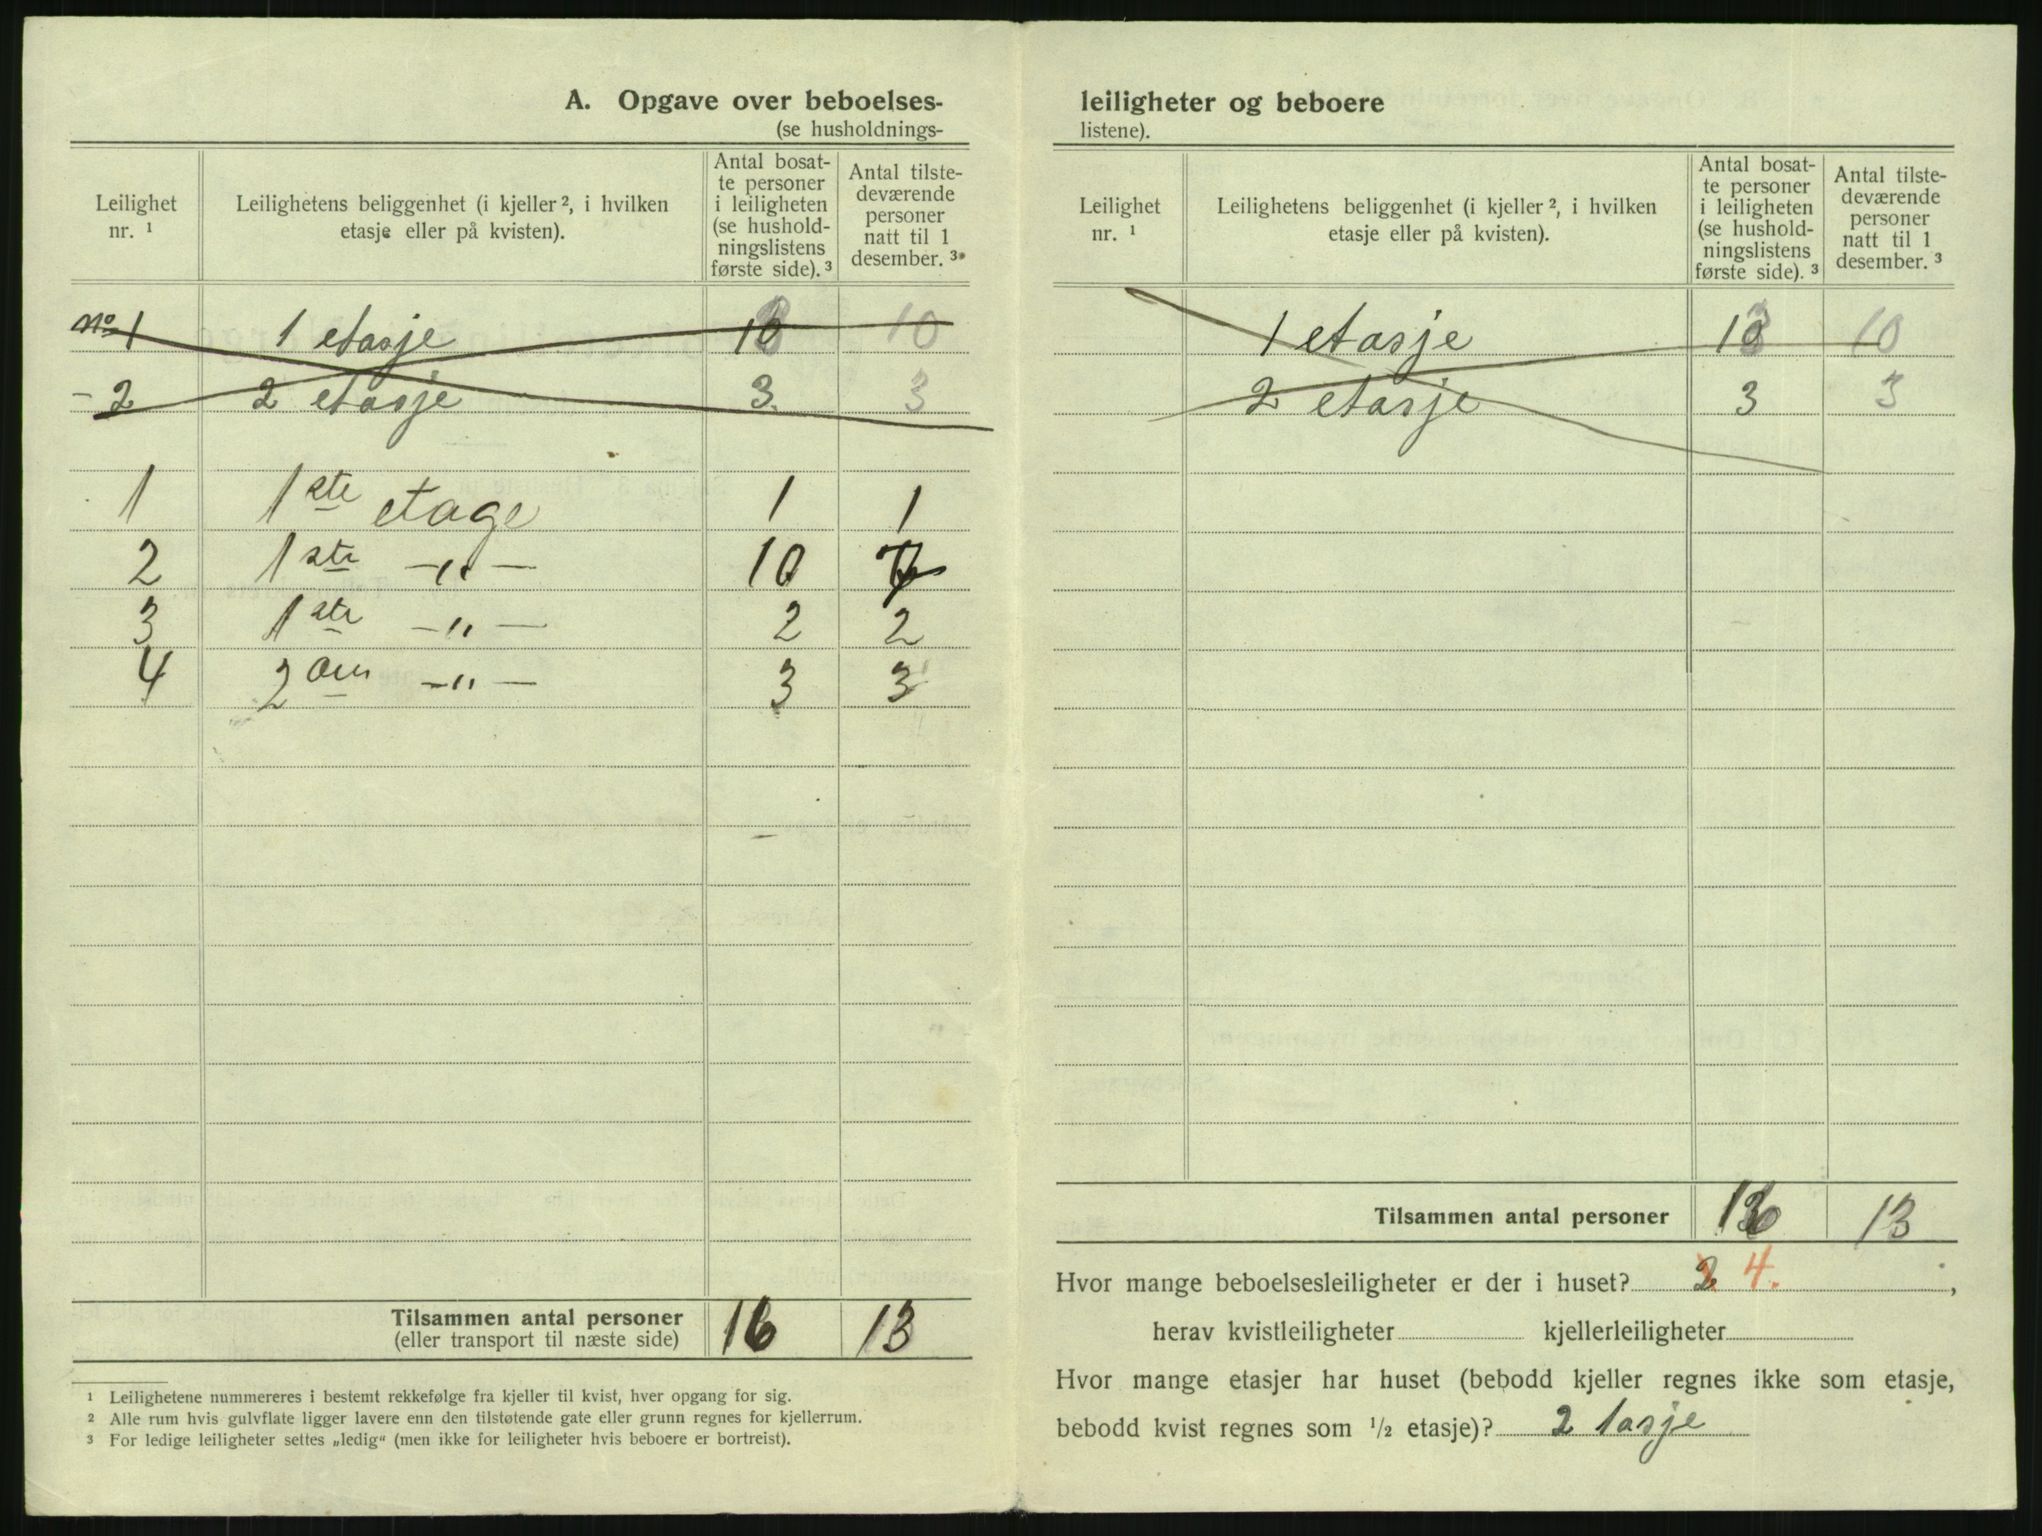 A. Opgave over beboelses-
(se husholdnings-
Leilighet nr. ¹
Leilighetens beliggenhet (i kjeller ², i hvilken etasje eller på kvisten).
Antal bosat-
te personer
i leiligheten
(se hushold-
ningslistens
første side). ³
Antal tilste-
deværende
personer
natt til 1
desember. ³
No 1 1 etasje 10 10
- 2 2 etasje 3 3
1 1ste etage 1 1
2 1ste -"- 10 7
3 1ste -"- 2 2
4 2den -"- 3 3
Tilsammen antal personer 16 13
(eller transport til næste side)
¹ Leilighetene nummereres i bestemt rekkefølge fra kjeller til kvist, hver opgang for sig.
² Alle rum hvis gulvflate ligger lavere enn den tilstøtende gate eller grunn regnes for kjellerrum.
³ For ledige leiligheter settes „ledig" (men ikke for leiligheter hvis beboere er bortreist).
leiligheter og beboere
listene).
Leilighet nr. ¹
Leilighetens beliggenhet (i kjeller ², i hvilken etasje eller på kvisten).
Antal bosat-
te personer
i leiligheten
(se hushold-
ningslistens
første side). ³
Antal tilste-
deværende
personer
natt til 1
desember. ³
1 etasje 10 10
2 etasje 3 3
Tilsammen antal personer 16 13
Hvor mange beboelsesleiligheter er der i huset? 2 4.,
herav kvistleiligheter kjellerleiligheter
Hvor mange etasjer har huset (bebodd kjeller regnes ikke som etasje,
bebodd kvist regnes som ½ etasje)? 2 tasje